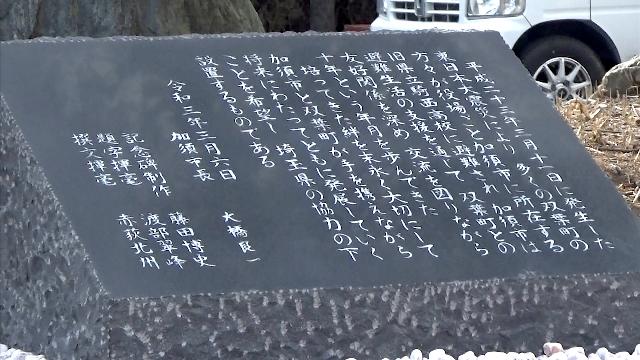 平成二十三年三月十一日に発生した
東日本大震災により、多くの双葉町の
方々が役場ごと加須市に所在する
旧県立騎西高校に避難され、加須市は
避難生活の支援を通して双葉町との
友好関係を深め、交流を図りながら
十年という年月を歩んできた
培ってきた絆を末永く大切にして
加須市と双葉町が手を携えながら
将来にわたってともに発展していく
ことを希望し、埼玉県の協力の下
設置するものである
令和三年三月六日
加須市長 大橋良一
記念碑制作 藤田博史
題字揮毫 渡部翠峰
撰文揮毫 赤荻北州